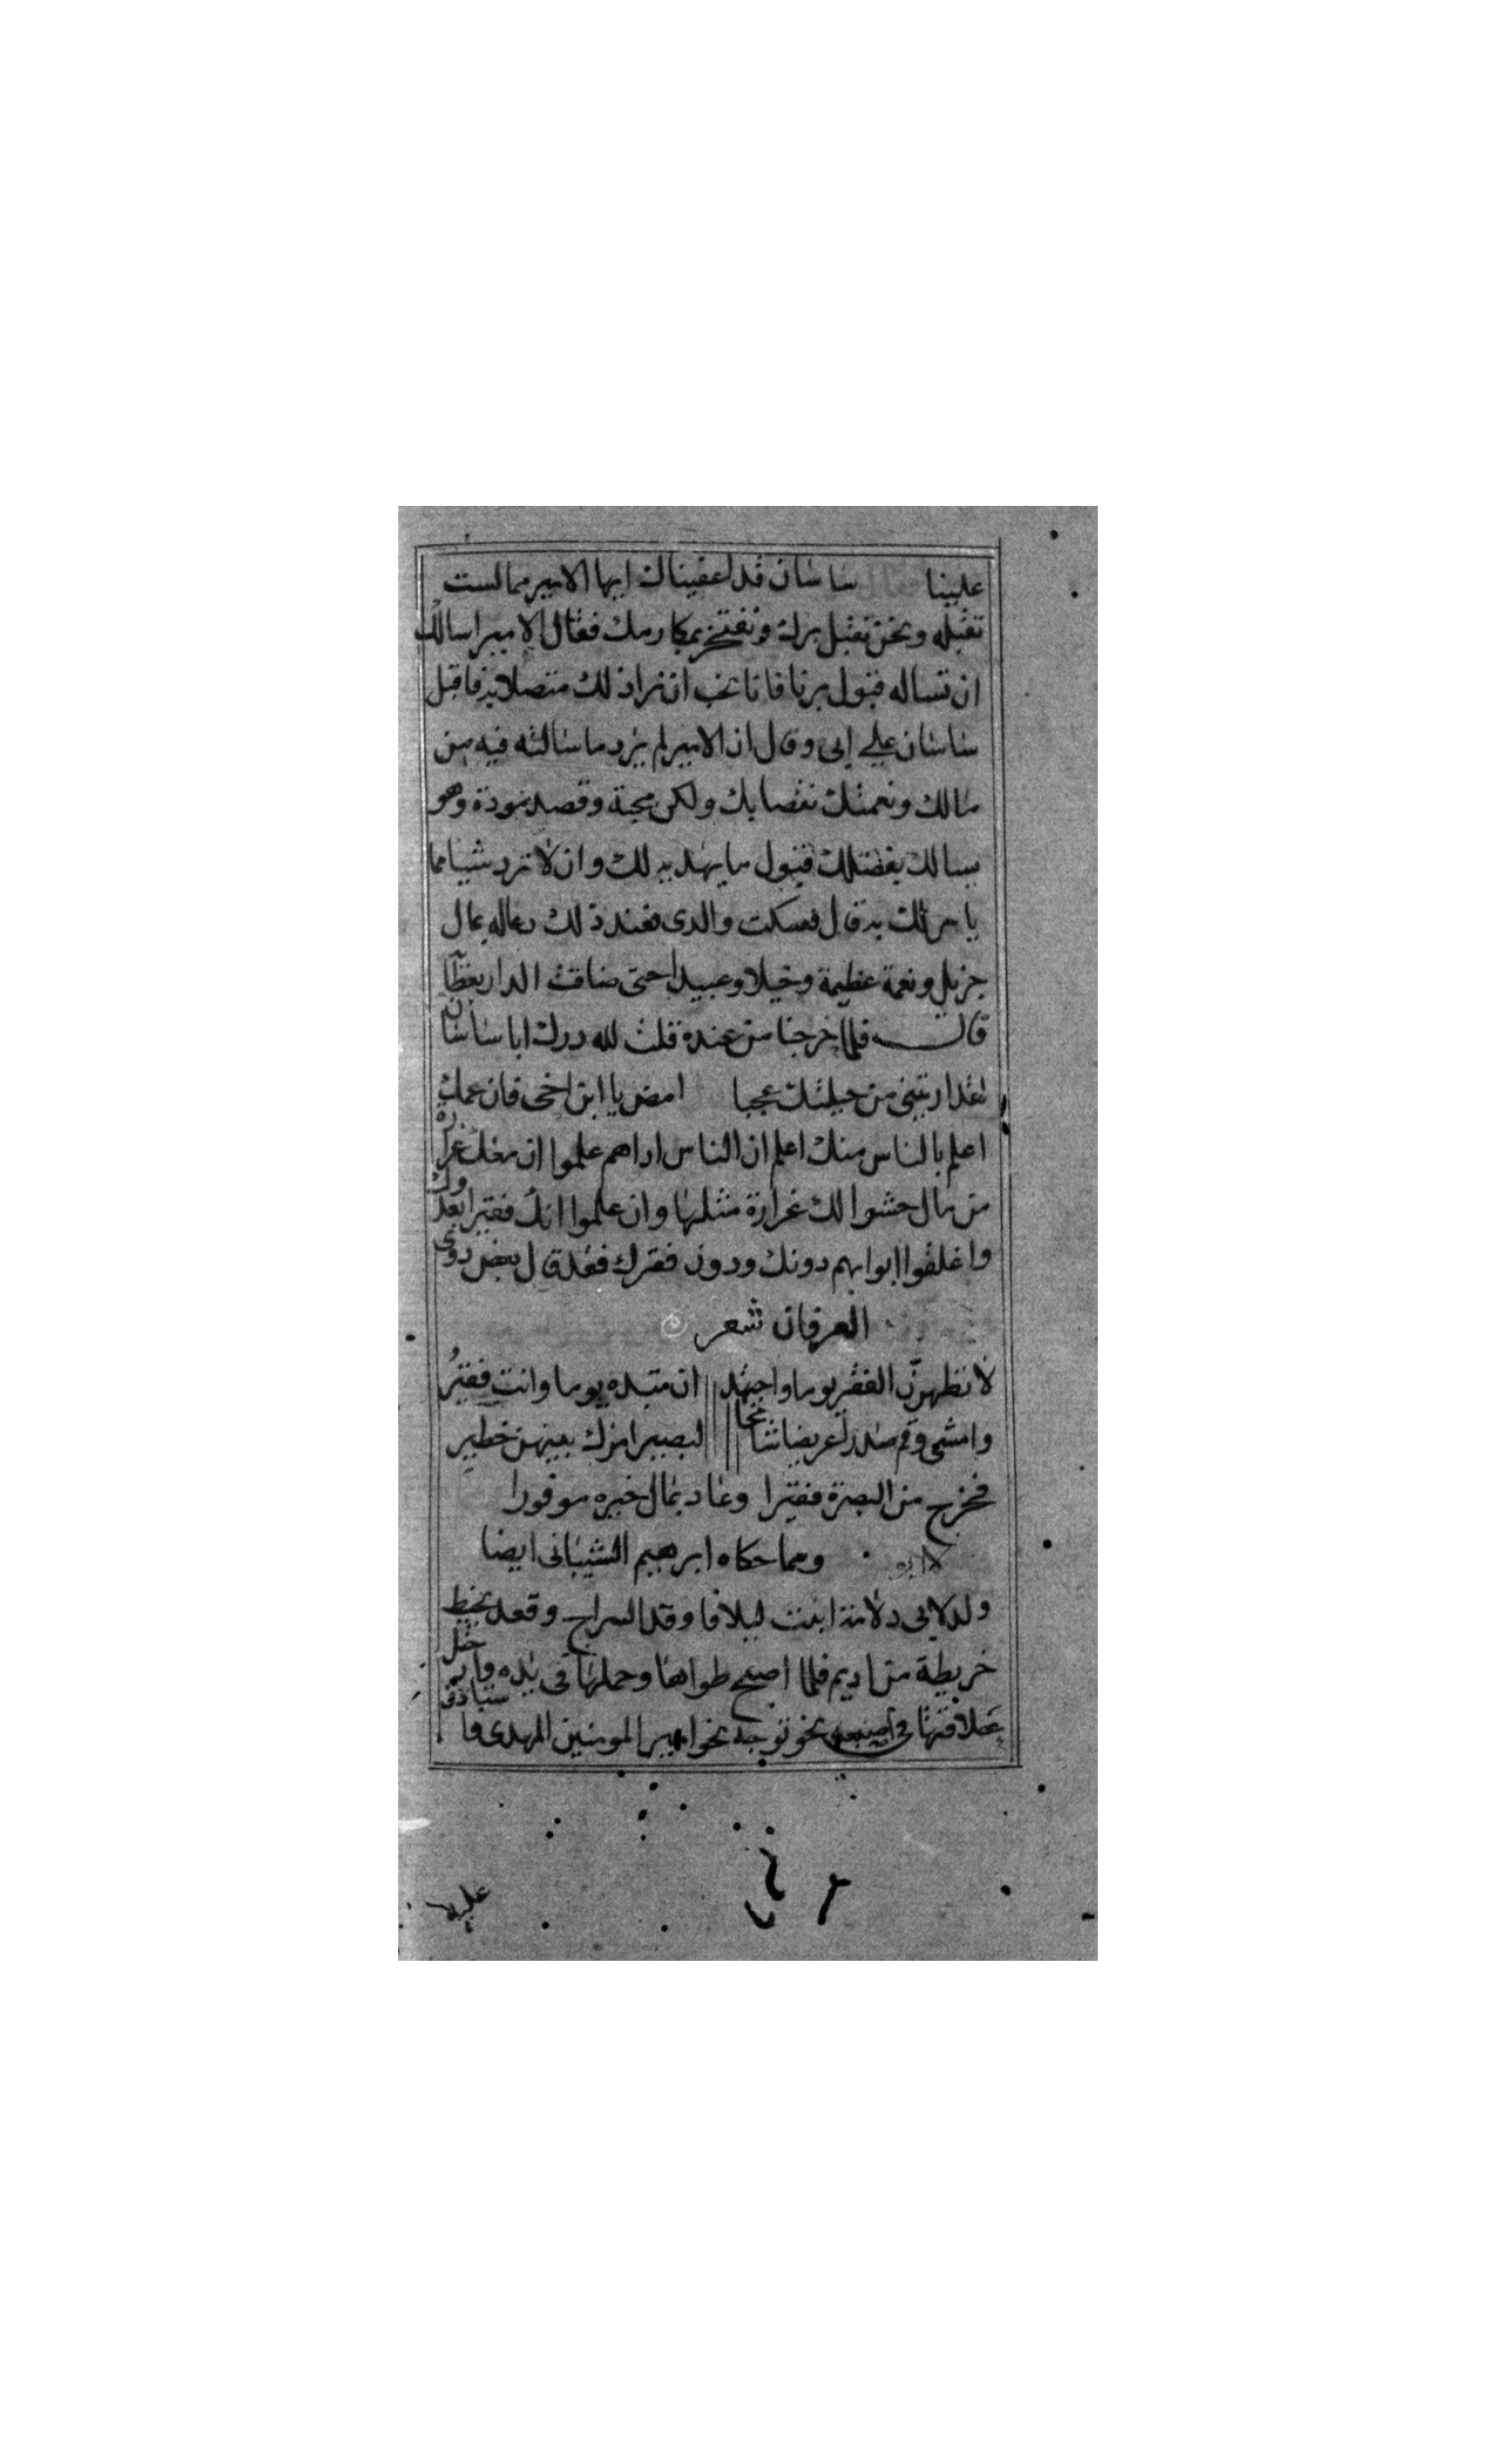 علينا ساسان قد اعفيناك ايها الامير مما لست
تقبله ونحن نقبل برك ونفتخر بمكارمك فقال الامير اسالك
ان تساله قبول برنا فانا نحب ان نراد لك متصلا به فاقبل
ساسان علي ابي وقال ان الامير لم يزد ما سالته فيه من
مالك ونعمتك نقصا بك ولكن محبة وقصد مودة وهو
يسالك بفضلك قبول ما يهديه لك وان لا ترد شيا مما
يامر لك به قال فسكت والدي فعند ذلك دعاله بمال
جزيل ونعمة عظيمة وخيلا وعبيدا حتى ضاقت الدار بغطا
قال فلما خرجنا من عنده قلت لله درك ابا ساسان
لقد اريتني من حيلتك عجبا امض يا ابن اخي فان عمك
اعلم بالناس منك اعلم ان الناس اذاهم علموا ان معك غرارة
من مال حشوا لك غرارة مثلها وان علموا انك فقير ابعدوك
واغلقوا ابوابهم دونك ودون فقرك فقد قال بعض ذوي
العرفان شعر
لا تظهرن الفقر يوما واجتهد ان متبده يوما وانت فقير
وامشي وقم صدرا عريضا شانحا لبصير امرك بينهن خطير
فخرج من البصرة فقيرا وعاد بمال خيره موفورا
ومما حكاه ابرهيم الشيباني ايضا
ولد لابي دلامة ابنت ليلا فاوقد السراج وقعد يخيط
خريطة من اديم فلما اصبح طواها وحملها في يده وابر حل
علاقتها في اصبعه نحو توجه نحو امير المومنين المهدي فاستاذن
عليه